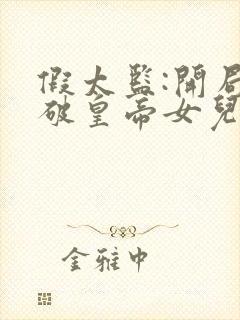 假太監:開局
破皇帝女兒
金雅中